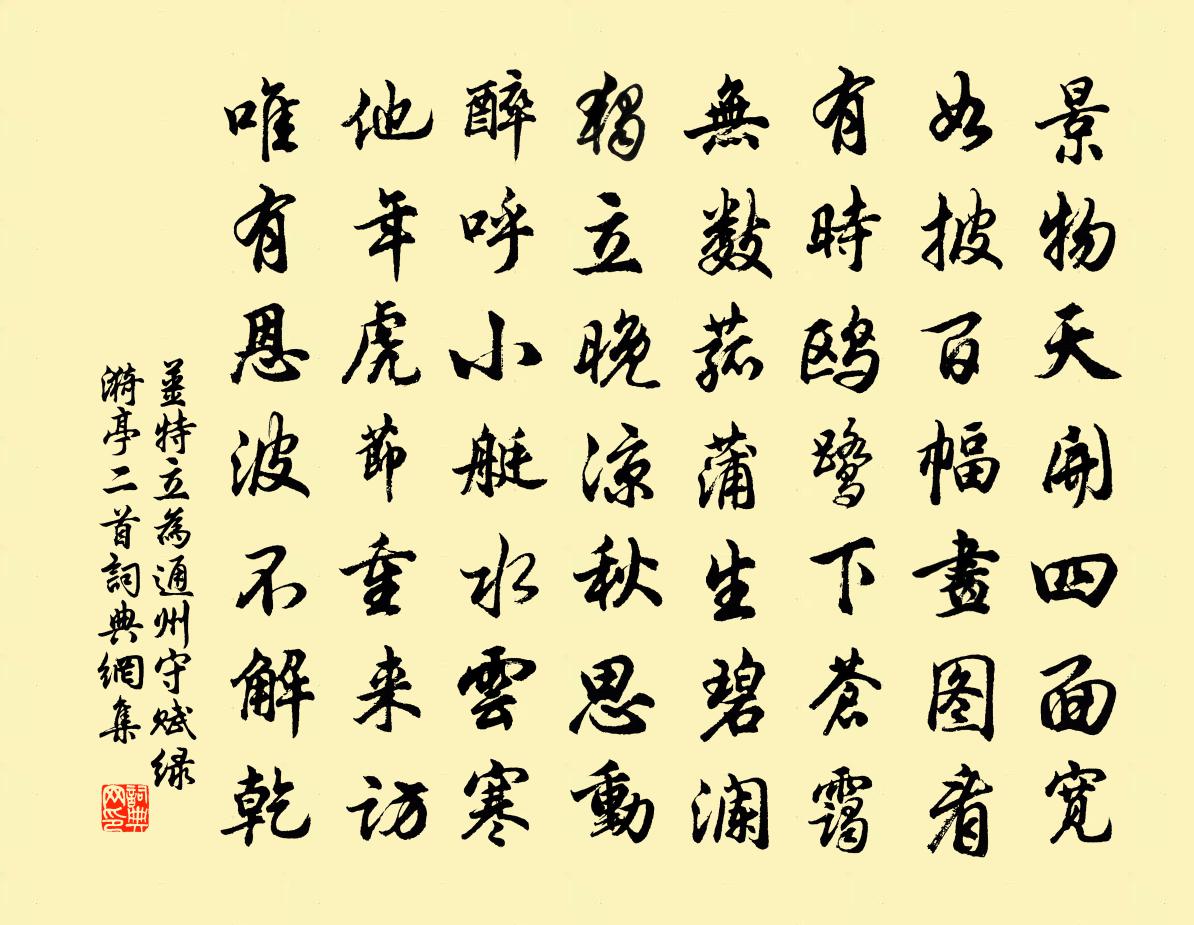 景物天開四面寬
如披百幅畫图看
有時鸥鹭下蒼靄
無數菰蒲生碧澜
獨立晚凉秋思動
醉呼小艇水雲寒
他年虎節重来访
唯有恩波不解乾
姜特立為通州守赋绿
漪亭二首詞典網集
詞典网印